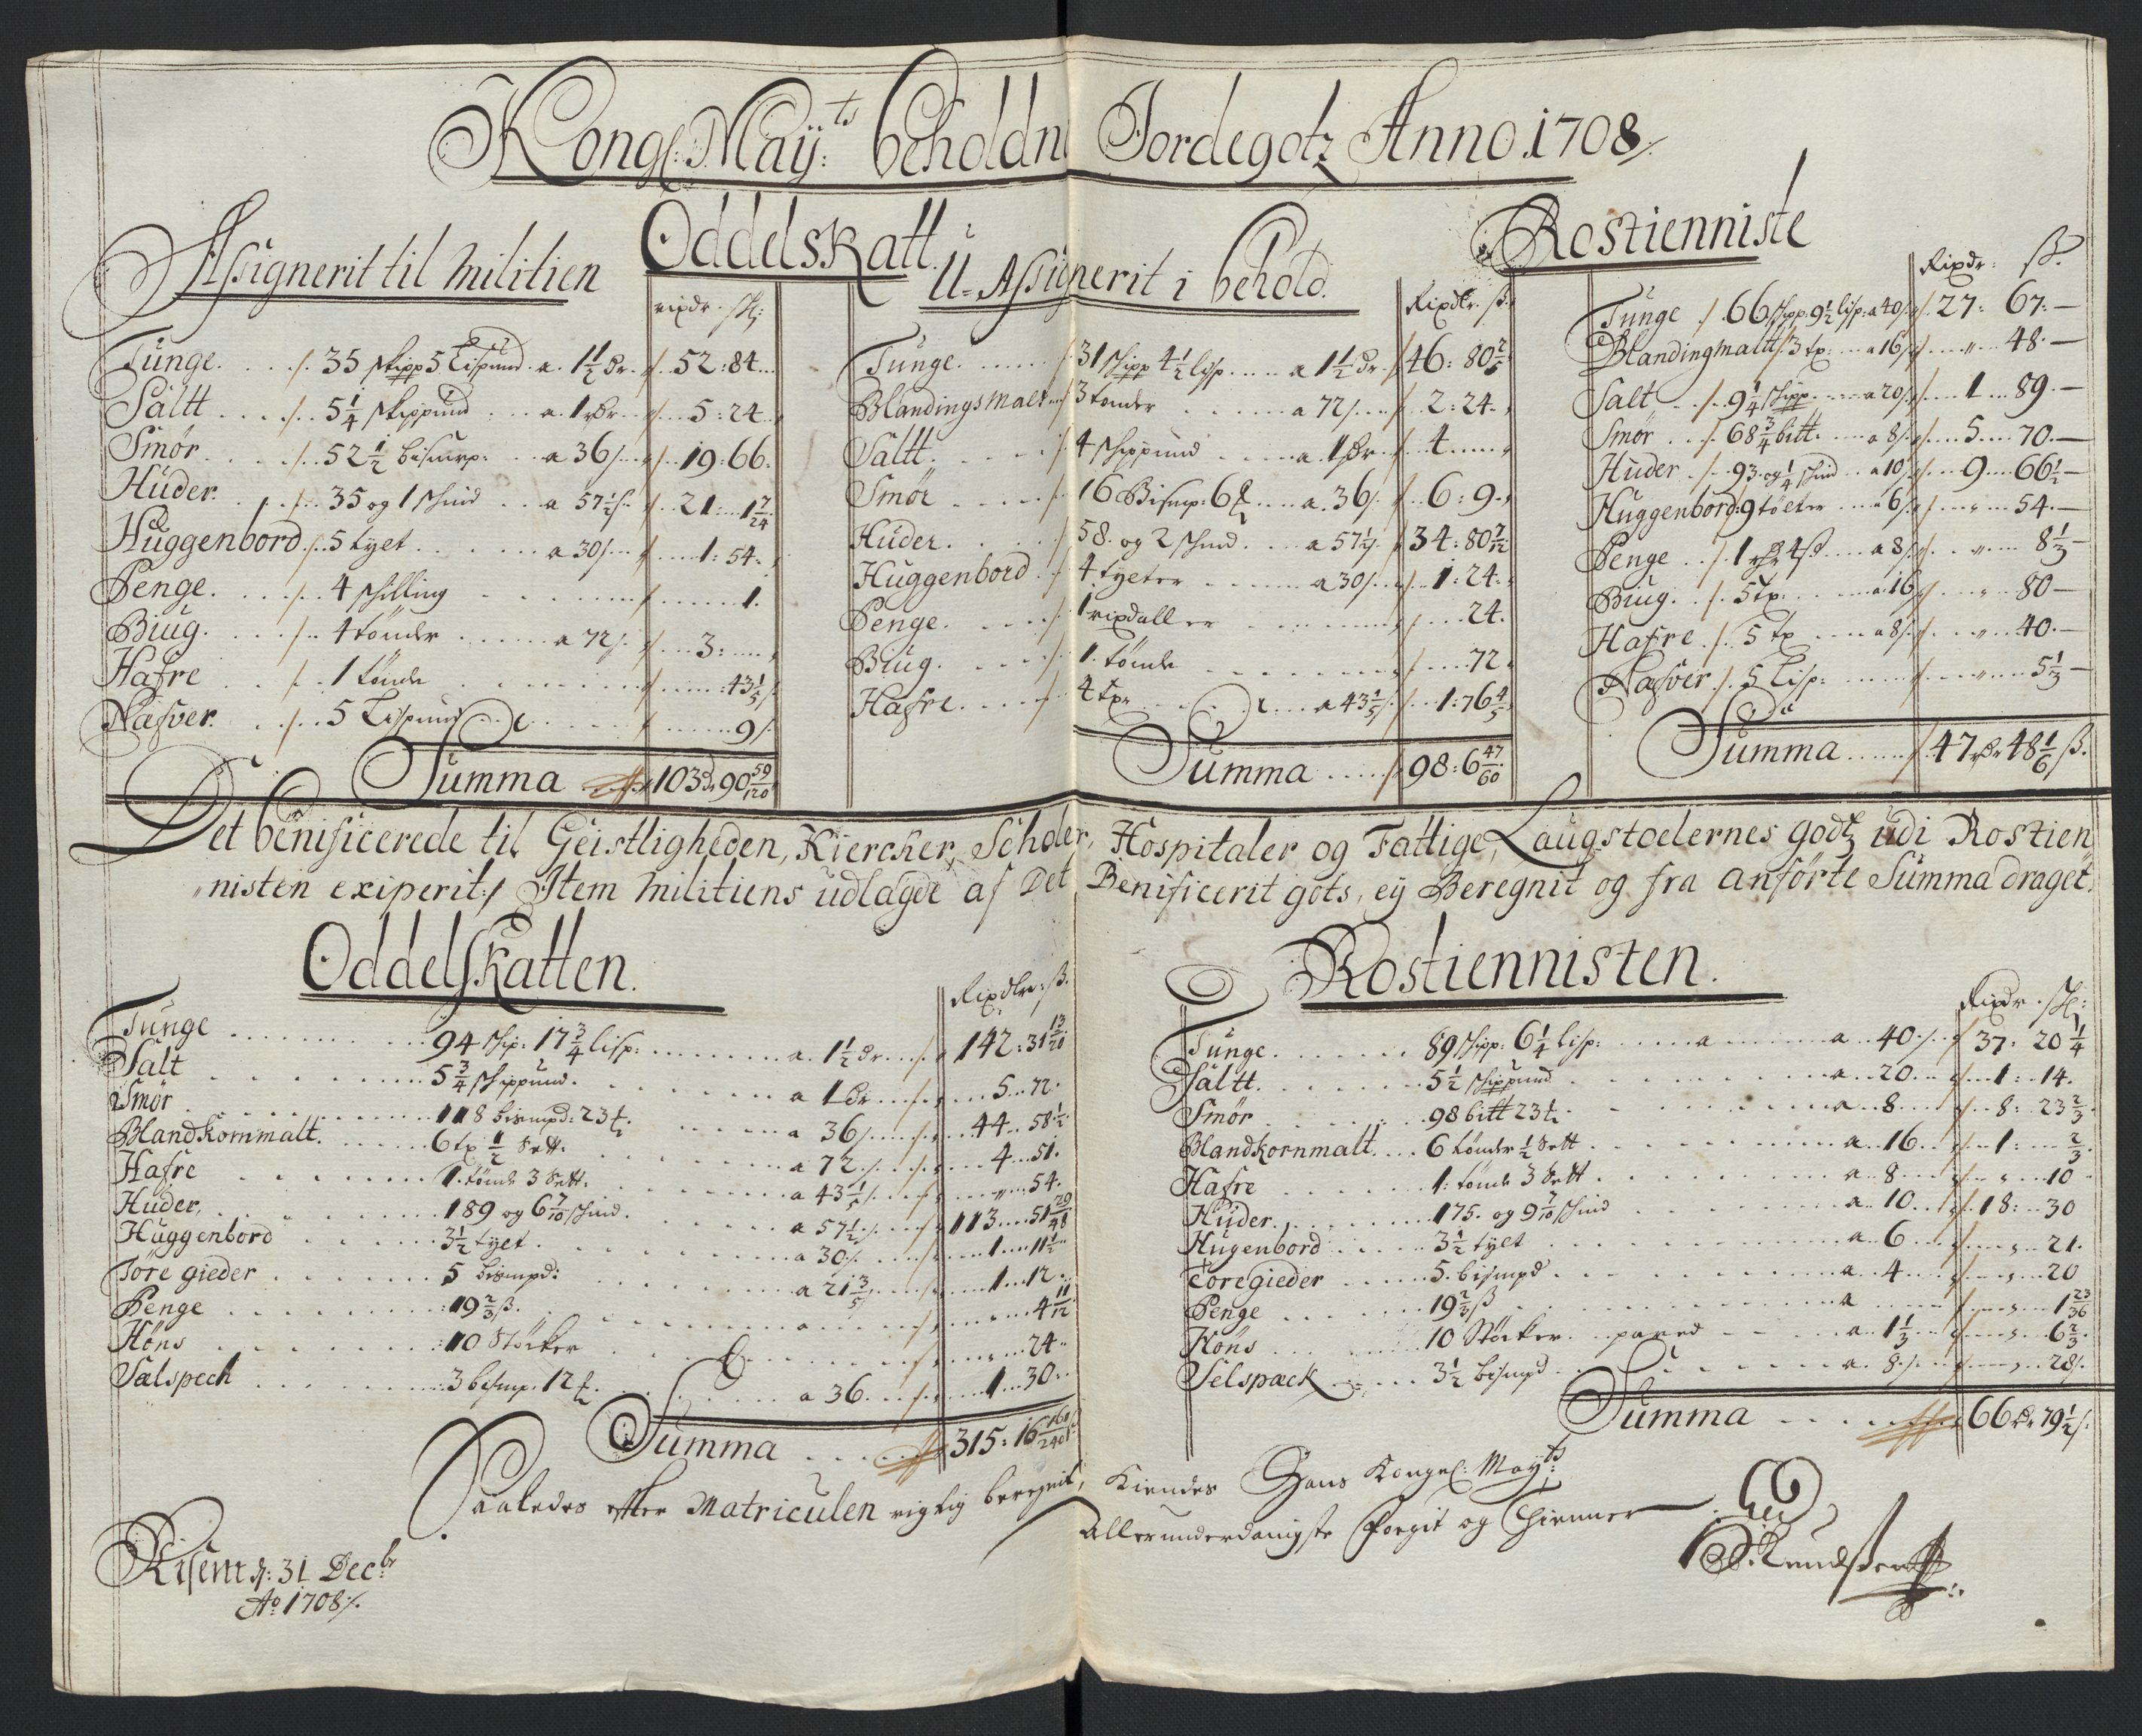 Kongl: Maÿ:ts beholdne Jordegotz Anno 1708
Oddelskatt
Assignerit til Militien
rixdr. sk:
Tunge 35 skipp 5 Lispund a 1 1/2 dr 52:84
Saltt 5 1/4 skippund a 1 rdr 5:24
Smør 52 1/2 bismrp: a 36 19:66
Huder 35 og 1 skind a 57 1/2 s 21:1 7/24
Huggenbord 5 tylet a 30 1:54
Penge 4 skilling 1
Biug 4 tönder a 72 3:
Hafre 1 tönde :43 1/5
Nafver 5 Lispund 9
Summa 103 dr 90 59/120
U-Assignerit i behold
Rixdlr. ß.
Tunge 31 skipp 4 1/2 lisp a 1 1/2 dr 46:80 2/5
Blandingsmalt 3 tönder a 72 2:24
Saltt 4 skippund a 1 dr 4
Smör 16 Bismp: 6 a 36 6:9
Huder 58 og 2 skind a 57 1/2 34:80 7/12
Huggenbord 4 tyeter a 30 1:24
Penge 1 rixdaller 24
Biug 1 tönde 72
Hafre 4 tpr a 43 1/5 1:76 4/5
Summa 98:6 47/60
Rostienniste
Rixdr: ß.
Tunge 66 skipp 9 1/2 lisp: a 40 27: 67
Blandingmaltt 3 tp: a 16 48
Salt 9 1/4 skipp a 20 1 89
Smör 68 3/4 bitt. a 8 5 70
Huder 93 og 1/4 skind a 10 9 66 1/2
Huggenbord: 9 töeter a 6 54
Penge 1 rdr 4 ß a 8 8 1/3
Biug 5 tp. a 16 80
Hafre 5 tp a 8 40
Nafver 5 Lisp: 5 1/3
Summa 47 rdr 48 1/6 ß.
Det benificerede til Geistligheden, Kiercker, Scholer, Hospitaler og Fattige, Laugstoelernes godtz udi Rostien
nisten exiperit:/ Item Militiens udlagde af Det Benificerit gots, eÿ Beregnit og fra anförte Summa draget.
Oddelskatten.
Rixdlr: ß.
Tunge 94 skp: 17 3/4 lisp: a 1 1/2 dr 142:31 13/20
Salt 5 3/4 skippund a 1 dr 5 72
Smør 118 bismpd: 23 a 36 44 58 1/2
Blandkornmalt 6 tp 1/2 Sett. a 72 4 51
Hafre 1 tönde 3 Sett. a 43 1/5 54
Huder 189 og 6 7/10 skind a 57 1/2 113 51 29/48
Huggenbord 3 1/2 tylet a 30 1 11 1/2
Töre gieder 5 bismpd: a 21 3/5 1 12
Penge 19 2/3 ß. 4 11/12
Höns 10 Stöcker 24
Sælspech 3 bismp. 12 a 36 1 30
Summa 315:16 161/240
Rostiennisten.
Rixdr. sk:
Tunge 89 skipp: 6 1/4 lisp: a 40 37: 20 1/4
Saltt 5 1/2 skippund a 20 1: 14
Smør 98 bitt 23 a 8 8: 23 2/3
Blandkornmalt 6 tönder 1/2 Sett a 16 1: 2/3
Hafre 1: tönde 3 Sett a 8 10
Huder 175 og 9 7/10 skind a 10 18: 30
Hugenbord 3 1/2 tylet a 6 21
Töregieder 5 bismpd a 4 20
Penge 19 2/3 ß a 1 23/36
Höns 10 Stöcker a 1 1/3 6 2/3
Selspæck 3 1/2 bismpd a 8 28
Summa 66 dr 79 1/2
Saaledes efter Matriculen rigtig beregnit, Kiendes Hans Kongel: May:ts
Allerunderdanigste Foegit og Thienner
Risem d: 31 Decbr
Ao 1708
Knudsen